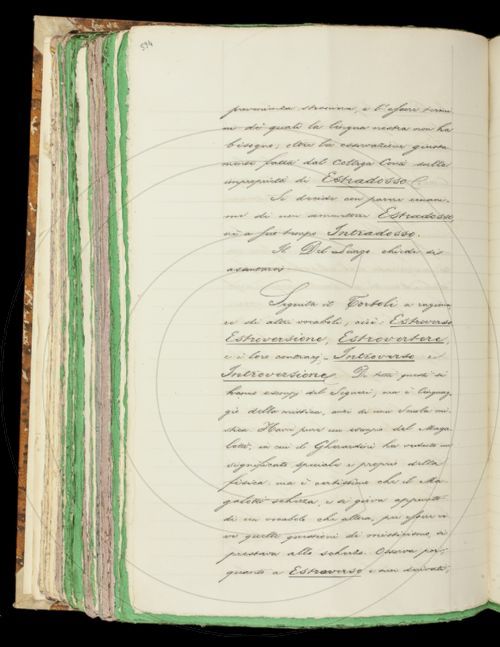 594
provenienza straniera, e l'essere termi
ni dei quali la lingua nostra non ha
bisogno; oltre la osservazione giusta
mente fatta dal Collega Conti sulla
improprietà di Estradosso.
Si decide con parere unani-
me di non ammettere Estradosso
nè a suo tempo Intradosso.
Il Del Lungo chiede di
assentarsi
Seguita il Tortoli a ragiona
re di altri vocaboli, cioè: Estroverso
Estroversione, Estrovertere,
e i loro contrarj, Introverso e
Introversione. Di tutti questi si
hanno esempj del Segneri; ma è linguag
gio della mistica, anzi di una Scuola mi
stica. Havvi pure un esempio del Maga
lotti, in cui il Gherardini ha veduto un
significato speciale e proprio della
fisica; ma è certissimo che il Ma
galotti scherza, e si giova appunto
di un vocabolo che allora, per essere vi
ve quelle questioni di misticismo, si
prestava allo scherzo. Osserva poi,
quanto a Estroverso e suoi derivati,